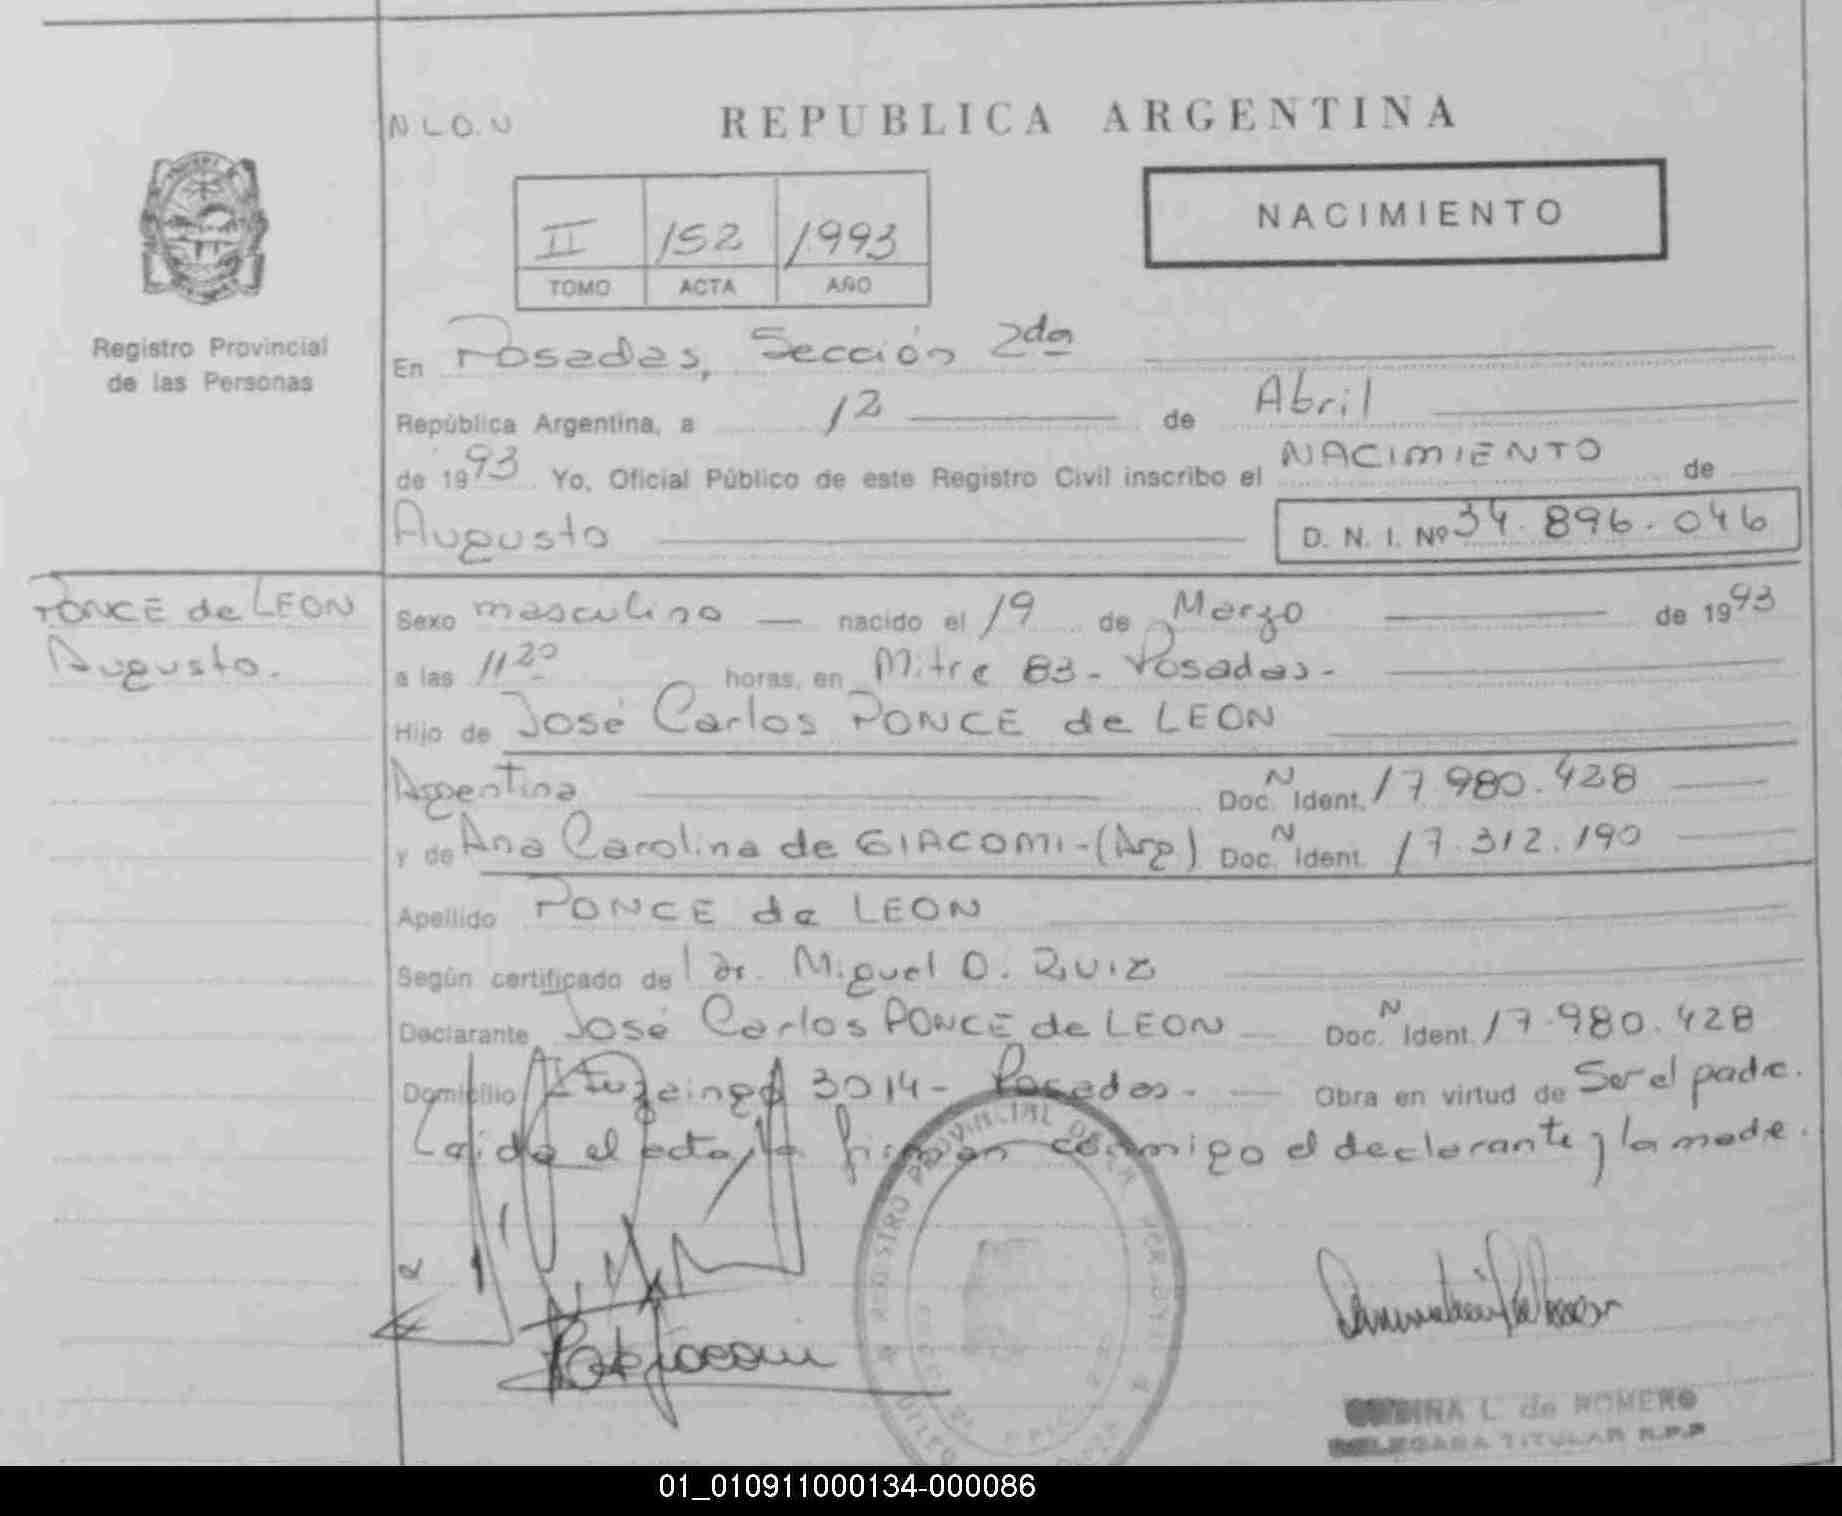 N L O. N
REPUBLICA ARGENTINA
NACIMIENTO
II 152 1993
TOMO ACTA AÑO
Registro Provincial
de las Personas
En Posadas, Sección 2da
República Argentina, a 12 de Abril
de 1993 Yo, Oficial Público de este Registro Civil inscribo el NACIMIENTO de
Augusto D. N. I. Nº 34.896.046
PONCE de LEON
Augusto.
Sexo masculino — nacido el 19 de Marzo de 1993
a las 11 20 horas, en Mitre 83 - Posadas. -
Hijo de José Carlos PONCE de LEON
Argentina Doc. N Ident. 17.980.428
y de Ana Carolina de GIACOMI - (Arg) Doc. N Ident. 17.312.190
Apellido PONCE de LEON
Según certificado de Dr. Miguel O. RUIZ
Declarante José Carlos PONCE de LEON Doc. N Ident. 17.980.428
Domicilio Ituzaingó 3014 - Posadas. - Obra en virtud de Ser el padre.
Leída el acta, la firman conmigo el declarante y la madre.
REGISTRO PROVINCIAL DE LAS PERSONAS
L. de ROMERO
DELEGADA TITULAR R.P.P
01_010911000134-000086